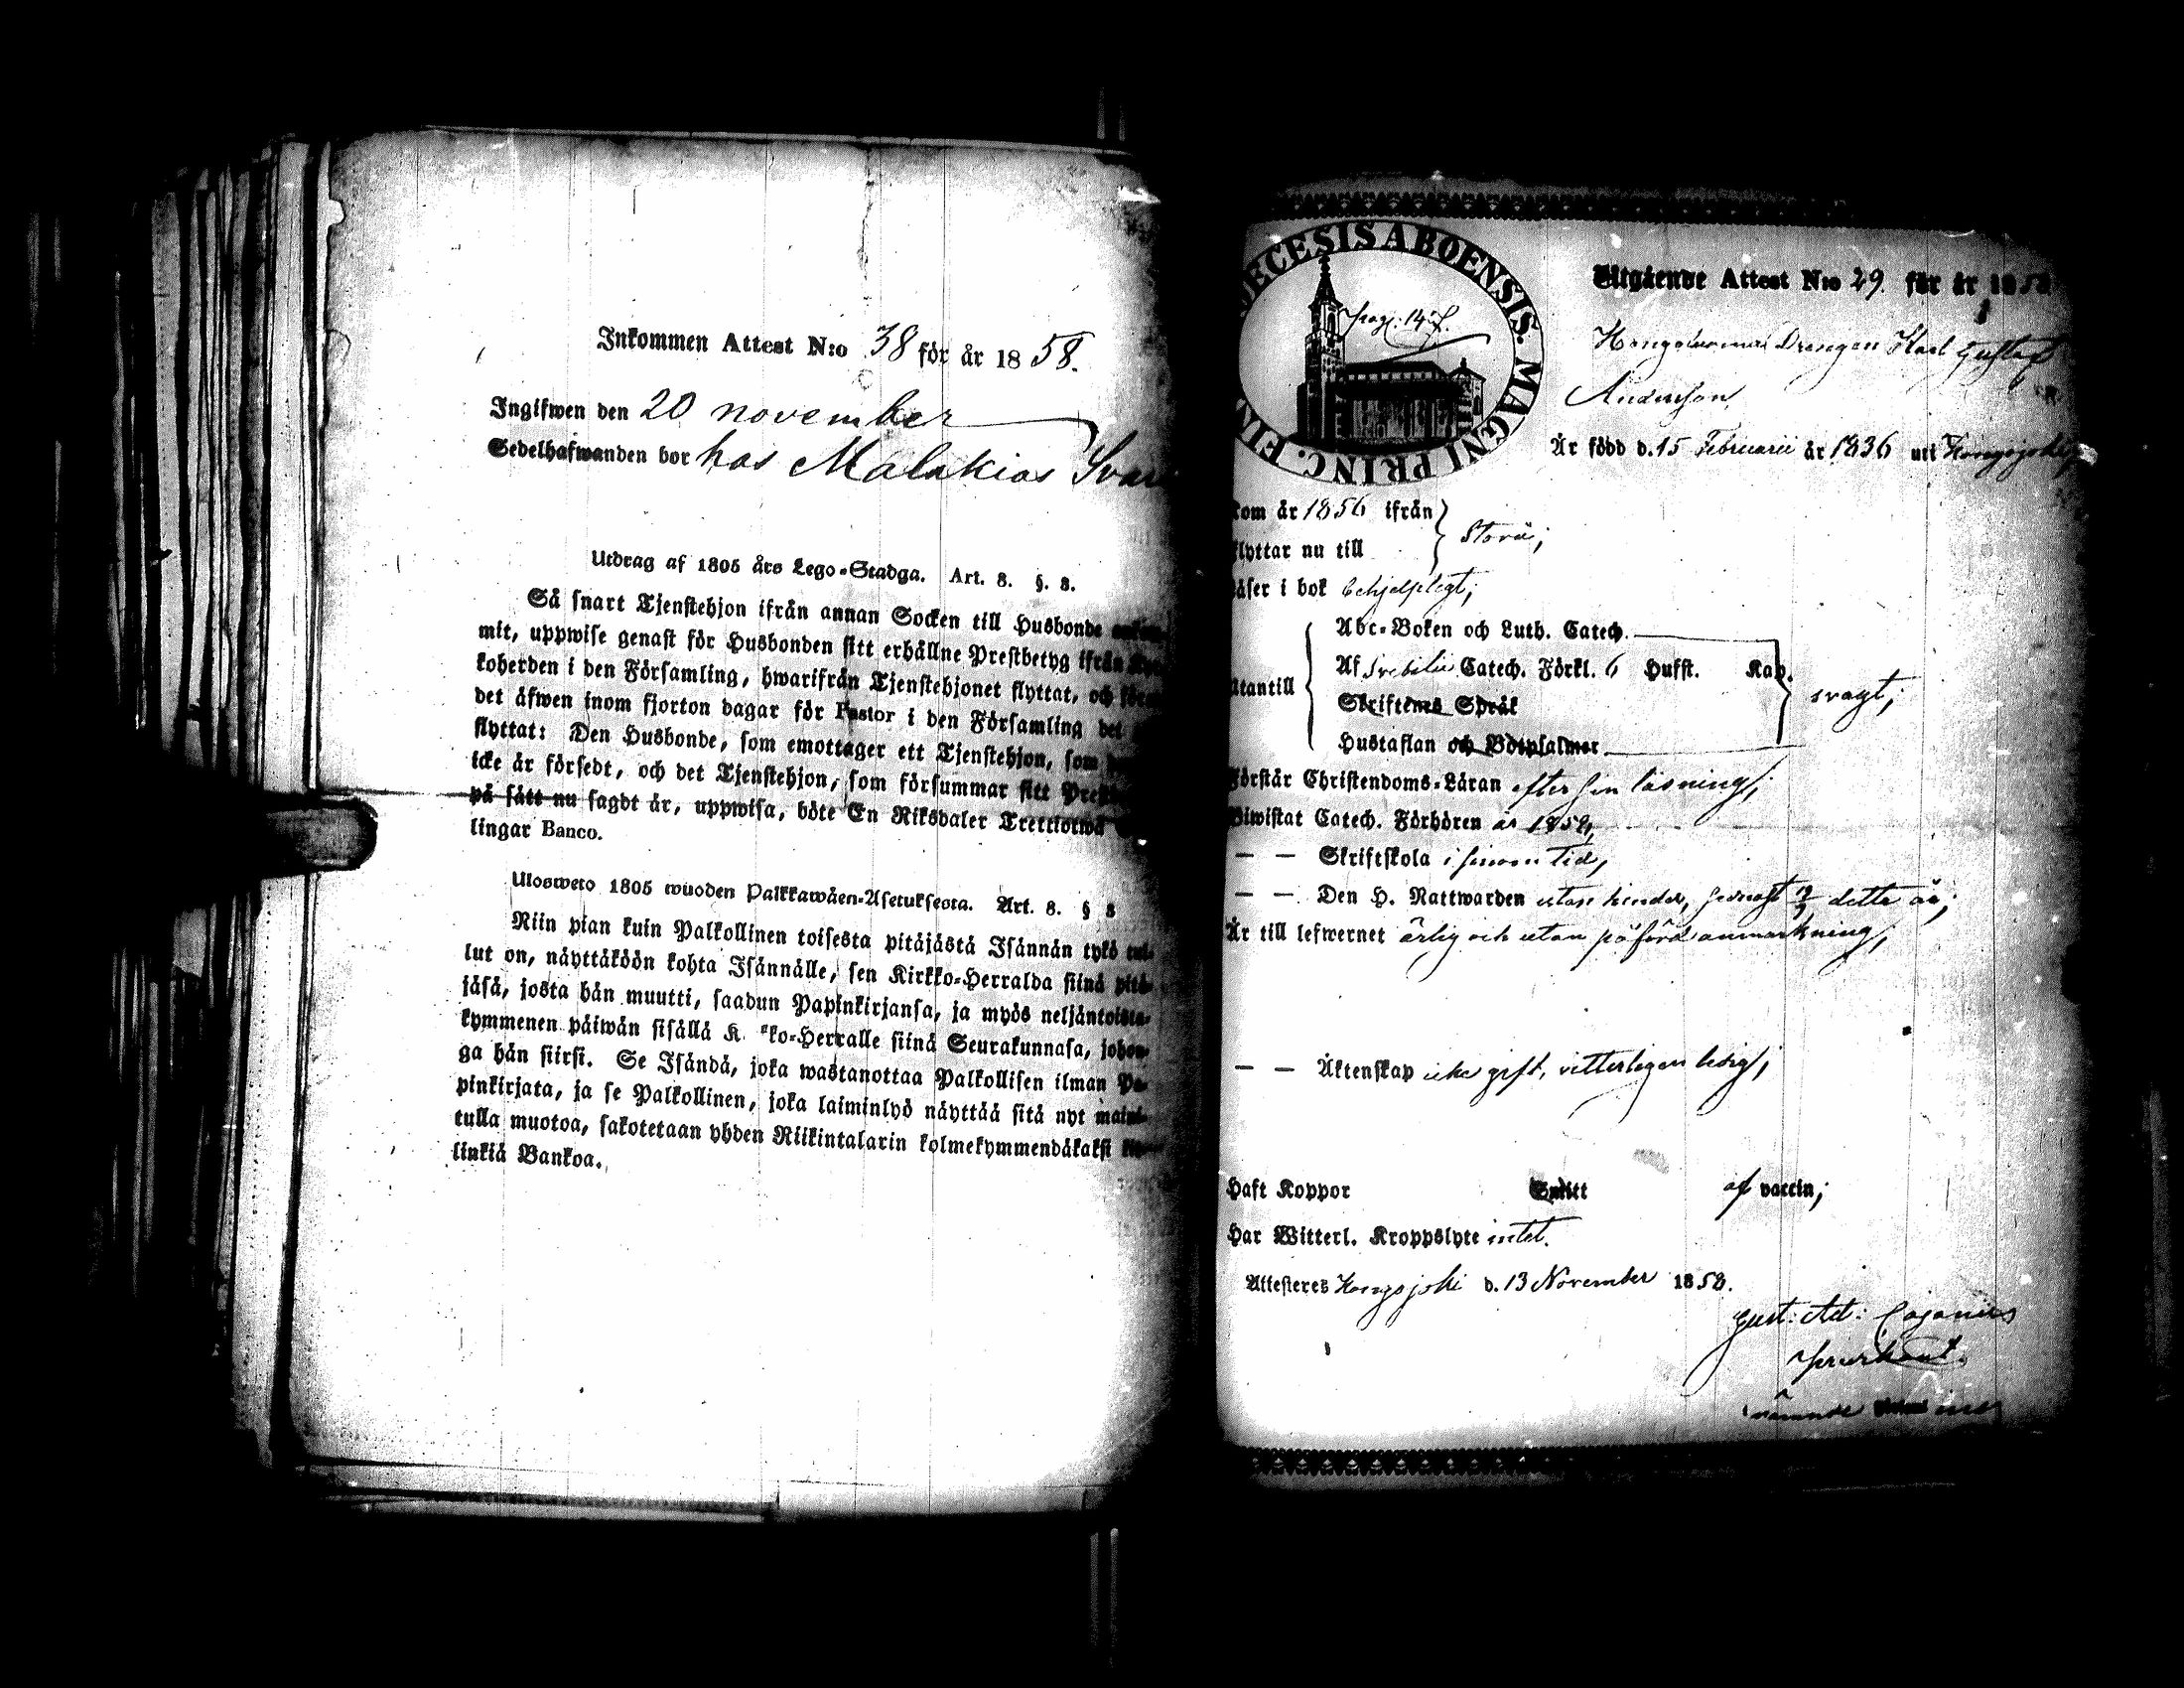 Inkommen Attest N:o 38 för år 1858.
Ingifwen den 20 november
Sedelhafwanden bor hos Malakias Svar
Utdrag af 1805 års Lego-Stadga. Art. 8. §. 8.
Så snart Tjenstehjon ifrån annan Socken till Husbonde
mit, uppwise genast för Husbonden sitt erhållne Prestbetyg ifrån
koherden i den Församling, hwarifrån Tjenstehjonet flyttat, och
det äfwen inom fjorton dagar för Pastor i den Församling det
flyttat: Den Husbonde, som emottager ett Tjenstehjon, som
icke är försedt, och det Tjenstehjon, som försummar sitt
på sätt nu sagdt är, uppwisa, böte En Riksdaler Trettiotwå
lingar Banco.
Ulosweto 1805 wuoden Palkkawäen-Asetuksesta. Art. 8. § 8
Niin pian kuin Palkollinen toisesta pitäjästä Isännän tykö tul-
lut on, näyttäköön kohta Isännälle, sen Kirkko-Herralda siinä pitä-
jäsä, josta hän muutti, saadun Papinkirjansa, ja myös neljäntoista-
kymmenen päiwän sisällä K ko-Herralle siinä Seurakunnasa, johon-
ga hän siirsi. Se Isändä, joka wastanottaa Palkollisen ilman Pa-
pinkirjata, ja se Palkollinen, joka laiminlyö näyttää sitä nyt maini-
tulla muotoa, sakotetaan yhden Riikintalarin kolmekymmendäkaksi
linkiä Bankoa.
DECESIS ABOENSIS. MAGNI PRINC. FIN
pag: 147.
Utgående Attest N:o 29. för år 1858
Drengen Karl Gustaf
Anderson,
Är född d. 15 Februarii år 1836 uti Kongsjoki
kom år 1856 ifrån
flyttar nu till
Storå;
läser i bok behjelpligt;
Abc-Boken och Luth. Catech.
Af Svebilii Catech. Förkl. 6 Hufst. Kap.
utantill
Skriftenes Språk
svagt;
Hustaflan och Botpsalmer
Förstår Christendoms-Läran efter sin läsning;
Biwistat Catech. Förhören år 1858,
— — Skriftskola i sinom tid,
— — Den H. Nattwarden utan hinder, senast 19/9 detta år;
Är till lefwernet ärlig och utan påförd anmärkning;
— — Äktenskap icke gift, vitterligen ledig;
Haft Koppor Smitt af vaccin;
Har Witterl. Kroppslyte intet.
Attesteres Kongsjoki d. 13 November 1858.
Gust: Ad: Cajanus